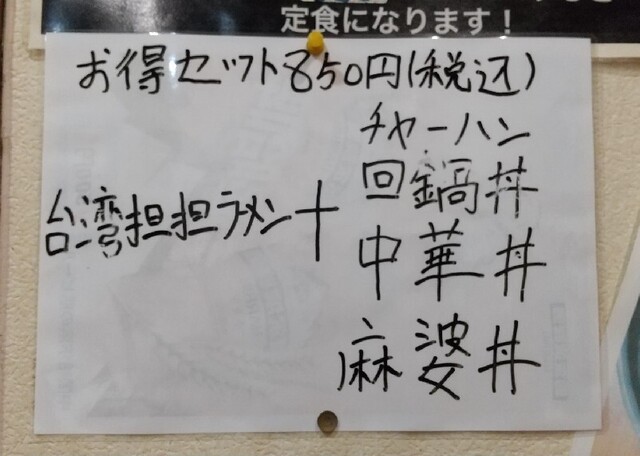 定食になります！
お得セット850円(税込)
チャーハン
回鍋丼
台湾担担ラーメン+
中華丼
麻婆丼